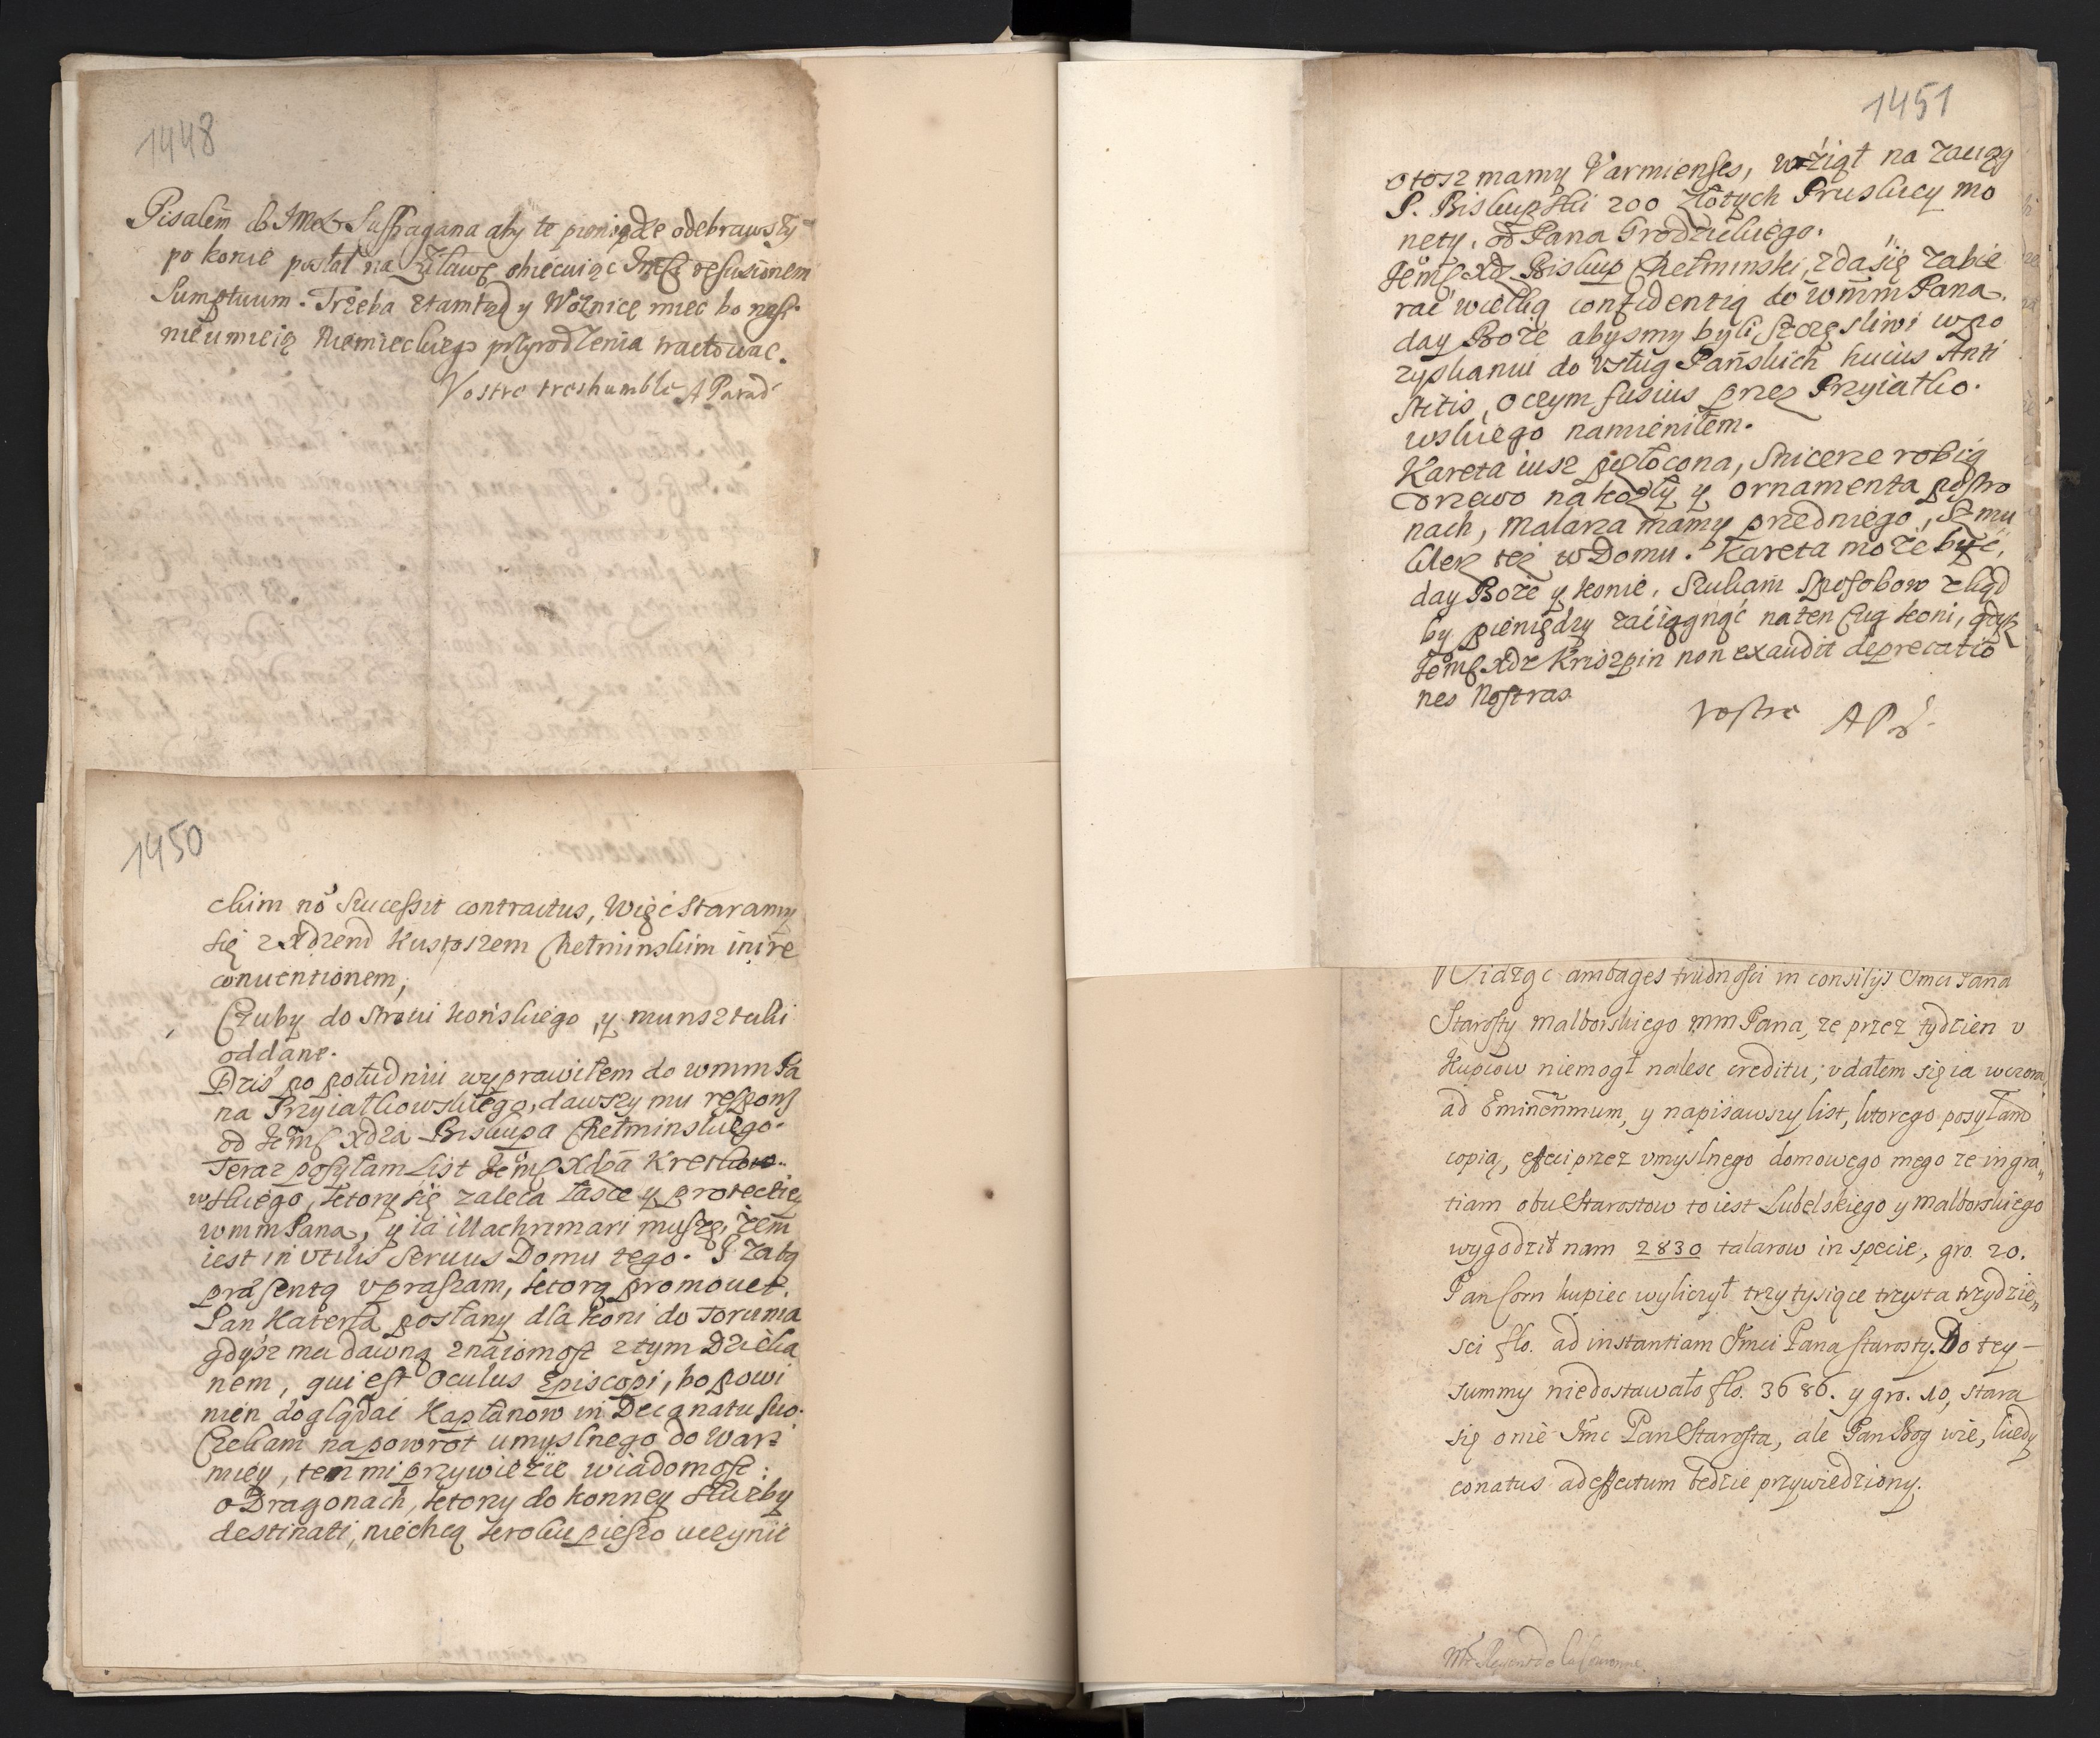 1448
Pisałem do JMci Suffragana aby te pieniądze odebrawszy
po konie posłał na Żuławę obiecuiąc Jmści refusionem
Sumptuum. Trzeba ztamtąd y Woznicę miec bo nasi
nieumieią Niemieckiego przyrodzenia tractowac.
Vostre treshumble A Parad
1450
ckim nō Successit contractus, Więc staramy
się z Xdzem Kustoszem Chełminskim inire
conuentionem,
Czuby do stroiu końskiego, y munsztuki
oddane.
Dziś po południu wyprawiłem do wmm Pa
na Przyiałkowskiego, dawszy mu respons
od Jemśc Xdza Biskupa Chełminskiego.
Teraz posyłam List Jemśc Xdza
wskiego, ktory się zaleca łasce y protectiey
wmm Pana, y ia illachrimari muszę, żem
iest inutilis Seruus Domu tego. I za tą
præsentą upraszam, ktorą promouet.
Pan Katerla posłany dla koni do Torunia
gdysz ma dawną znaiomosc z tym Dzieka
nem, qui est Oculus Episcopi, bo powi
nien doglądać Kapłanow in Decanatu suo.
Czekam na powrot umyslnego do War
miey, ten mi przywiezie wiadomosc
o Dragonach, ktorzy do konney służby
destinati, niechcą kroku pieszo uczynic
1451
otosz mamy Varmienses, wziął na zaciąg
P. Biskupski 200 złotych Pruskiey mo
nety, od Pana Grodzickiego.
Jemśc Xdz Biskup Chełminski, zda się zabie
rać wielką confidentią do wmm Pana.
day Boże abysmy byli szczęsliwi w po
zyskaniu do usług Pańskich huius Anti
stitis, o czym fusius przez Przyiałko
wskiego namieniłem.
Kareta iusz złocona, Snicerze robią
drzewo na kozły y ornamenta po stro
nach, malarza mamy przedniego, Szmu
klerz tez w Domu. Kareta może być,
day Boże y konie, Szukam Sposobow zkąd
by pieniędzy zaciągnąć na ten Cug koni, gdysz
Jemśc Xdz Kriszpin non exaudit deprecatio
nes Nostras.
Vostre A P
Widząc ambages trudnosci in consilijs Jmci Pana
Starosty malborskiego mm Pana, ze przez tydzien u
Kupcow niemogł nalesc creditu; udałem się ia wczora
ad Eminēnmum, y napisawszy list, ktorego posyłam
copią, effeci przez umyslnego domowego mego ze in gra
tiam obu Starostow to iest Lubelskiego y malborskiego
wygodził nam 2830 talarow in specie, gro. 20.
Pan Som kupiec wyliczył trzy tysiące trzysta trzydzie
sci flo. ad instantiam Jmci Pana starosty. Do tey
summy niedostawało flo. 3686. y gro. 10, stara
się o nie Jmc Pan Starosta, ale Pan Bog wie, kiedy
conatus ad effectum bedzie przywiedziony.
Mr Regent de la Couronne